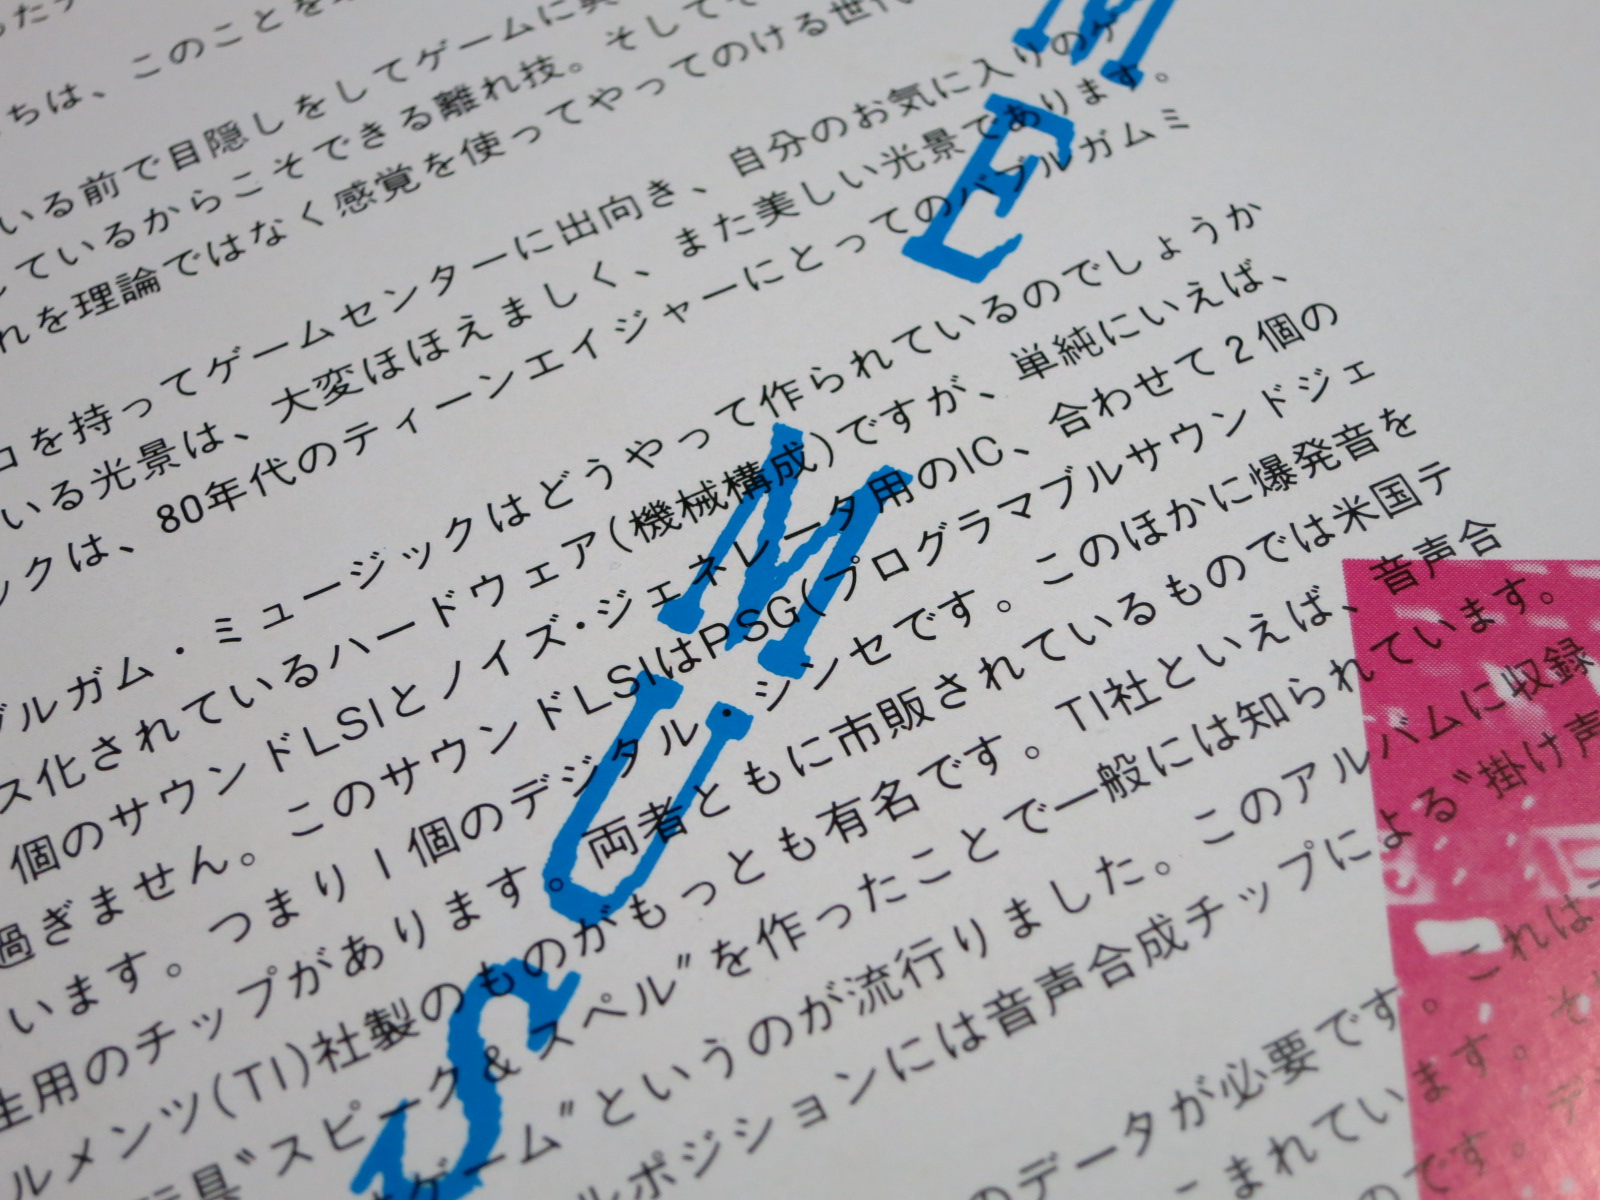 ちは、このことを
いる前で目隠しをしてゲームに
しているからこそできる離れ技。そして
れを理論ではなく感覚を使ってやってのける世代
コを持ってゲームセンターに出向き、自分のお気に入りのゲ
いる光景は、大変ほほえましく、また美しい光景であります。
ックは、80年代のティーンエイジャーにとってのバブルガムミ
ブルガム・ミュージックはどうやって作られているのでしょうか
ス化されているハードウェア(機械構成)ですが、単純にいえば、
個のサウンドLSIとノイズ・ジェネレータ用のIC、合わせて2個の
過ぎません。このサウンドLSIはPSG(プログラマブルサウンドジェ
います。つまり1個のデジタル・シンセです。このほかに爆発音を
生用のチップがあります。両者ともに市販されているものでは米国テ
ルメンツ(TI)社製のものがもっとも有名です。TI社といえば、音声合
玩具〝スピーク&スペル〟を作ったことで一般には知られています。
ゲーム〟というのが流行りました。このアルバムに収録
ルポジションには音声合成チップによる〝掛け声
のデータが必要です。これは
まれています。そ
のです。デ
SUM
EM